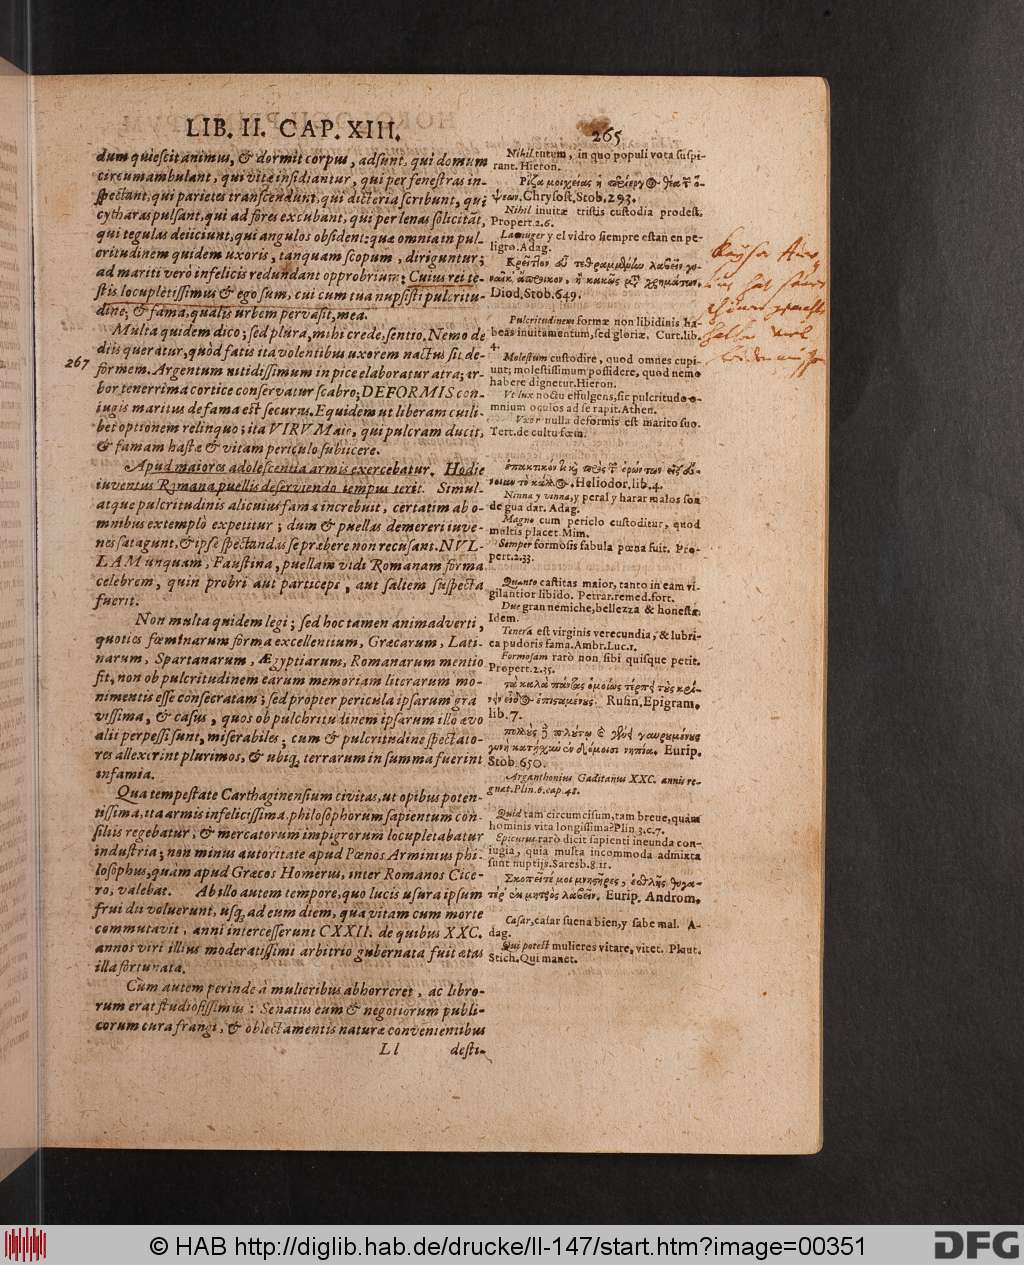 LIB. II. CAP. XIII. 265
dum quiescit animus, & dormit corpus, adsunt, qui domum
circumambulant, qui vitæ insidiantur, qui per fenestras in-
spectant, qui parietes transcendunt, qui dicteria scribunt, qui
cytharas pulsant, qui ad fores excubant, qui per lenas solicitāt,
qui tegulas deiiciunt, qui angulos obsident: quæ omnia in pul-
critudinem quidem uxoris, tanquam scopum, diriguntur;
ad mariti verò infelicis redundant opprobrium: Cuius rei te-
stis locupletissimus & ego sum, cui cum tua nupsisti pulcritu-
dine; & fama, qualis urbem pervasit, mea.
Multa quidem dico; sed plura, mihi crede, sentio. Nemo de
diis queratur, quòd fatis ita volentibus uxorem nactus sit de-
267
formem. Argentum nitidissimum in pice elaboratur atra; ar-
bor tenerrima cortice conservatur scabro; DEFORMIS con-
iugis maritus de fama est securus. Equidem ut liberam cuili-
bet optionem relinquo; ita VIRVM aio, qui pulcram ducit,
& famam hastæ & vitam periculo subiicere.
Apud maiores adolescentia armis exercebatur. Hodie
iuventus Romana puellis deserviendo tempus terit. Simul-
atque pulcritudinis alicuius fama increbuit, certatim ab o-
mnibus extemplò expetitur; dum & puellas demereri iuve-
nes satagunt, & ipsæ spectandas se præbere non recusant. NVL-
LAM unquam, Faustina, puellam vidi Romanam forma
celebrem, quin probri aut particeps, aut saltem suspecta
fuerit.
Non multa quidem legi; sed hoc tamen animadverti,
quoties fœminarum forma excellentium, Græcarum, Lati-
narum, Spartanarum, Ægyptiarum, Romanarum mentio
fit, non ob pulcritudinem earum memoriam literarum mo-
nimentis esse consecratam; sed propter pericula ipsarum gra
vissima, & casus, quos ob pulchritudinem ipsarum illo ævo
alii perpessi sunt, miserabiles; cum & pulcritudine spectato-
res allexerint plurimos, & ubiq; terrarum in summa fuerint
infamia.
Qua tempestate Carthaginensium civitas, ut opibus poten-
tissima, ita armis infelicissima, philosophorum sapientum con-
siliis regebatur, & mercatorum impigrorum locupletabatur
industria; non minus autoritate apud Pœnos Arminius phi-
losophus, quam apud Græcos Homerus, inter Romanos Cice-
ro, valebat. Ab illo autem tempore, quo lucis usura ipsum
frui dii voluerunt, usq; ad eum diem, qua vitam cum morte
commutavit, anni intercesserunt CXXII. de quibus XXC.
annos viri illius moderatissimi arbitrio gubernata fuit ætas
illa fortunata.
Cùm autem perinde à mulieribus abhorreret, ac libro-
rum erat studiosissimus: Senatus eum & negotiorum publi-
corum cura frangi, & oblectamentis naturæ convenientibus
Ll desti-
Nihil tutum, in quo populi vota suspi-
rant. Hieron.
Ρίζα μοιχείας ἡ
ὄψεων. Chrysost. Stob. 293.
Nihil invitæ tristis custodia prodest.
Propert. 2.6.
La muger y el vidro siempre estan en pe-
ligro. Adag.
Diod. Stob. 649.
Pulcritudinem formæ non libidinis ha-
beas invitamentum, sed gloriæ. Curt. lib.
4.
Molestum custodire, quod omnes cupi-
unt; molestissimum possidere, quod nemo
habere dignetur. Hieron.
Ut lux noctu effulgens, sic pulcritudo o-
mnium oculos ad se rapit. Athen.
Vxor nulla deformis est marito suo.
Tert. de cultu fœm.
Heliodor. lib. 4.
Ninna y vinna, y peral y harar malos son
de gua dar. Adag.
Magno cum periclo custoditur, quod
multis placet. Mim.
Semper formosis fabula pœna fuit. Pro-
pert. 2.33.
Quanto castitas maior, tanto in eam vi-
gilantior libido. Petrar. remed. fort.
Due gran nemiche, bellezza & honestà.
Idem.
Tenera est virginis verecundia, & lubri-
ca pudoris fama. Ambr. Luc. 1.
Formosam rarò non sibi quisque petit.
Propert. 2.35.
Rufin. Epigram.
lib. 7.
Eurip.
Stob. 650.
Arganthonius Gaditanus XXC. annis re-
gnat. Plin. 6. cap. 48.
Quid tam circumcisum, tam breve, quàm
hominis vita longissima? Plin. 3. c. 7.
Epicurus rarò dicit sapienti ineunda con-
iugia, quia multa incommoda admixta
sunt nuptijs. Saresb. 8. 11.
Σκοπεῖτέ μοι μνηστῆρες, ἐσθλῆς θυγα-
τέρ' ἐκ μητρὸς λαβεῖν. Eurip. Androm.
Casar, casar suena bien, y sabe mal. A-
dag.
Qui potest mulieres vitare, vitet. Plaut.
Stich. Qui manet.
© HAB http://diglib.hab.de/drucke/ll-147/start.htm?image=00351
DFG